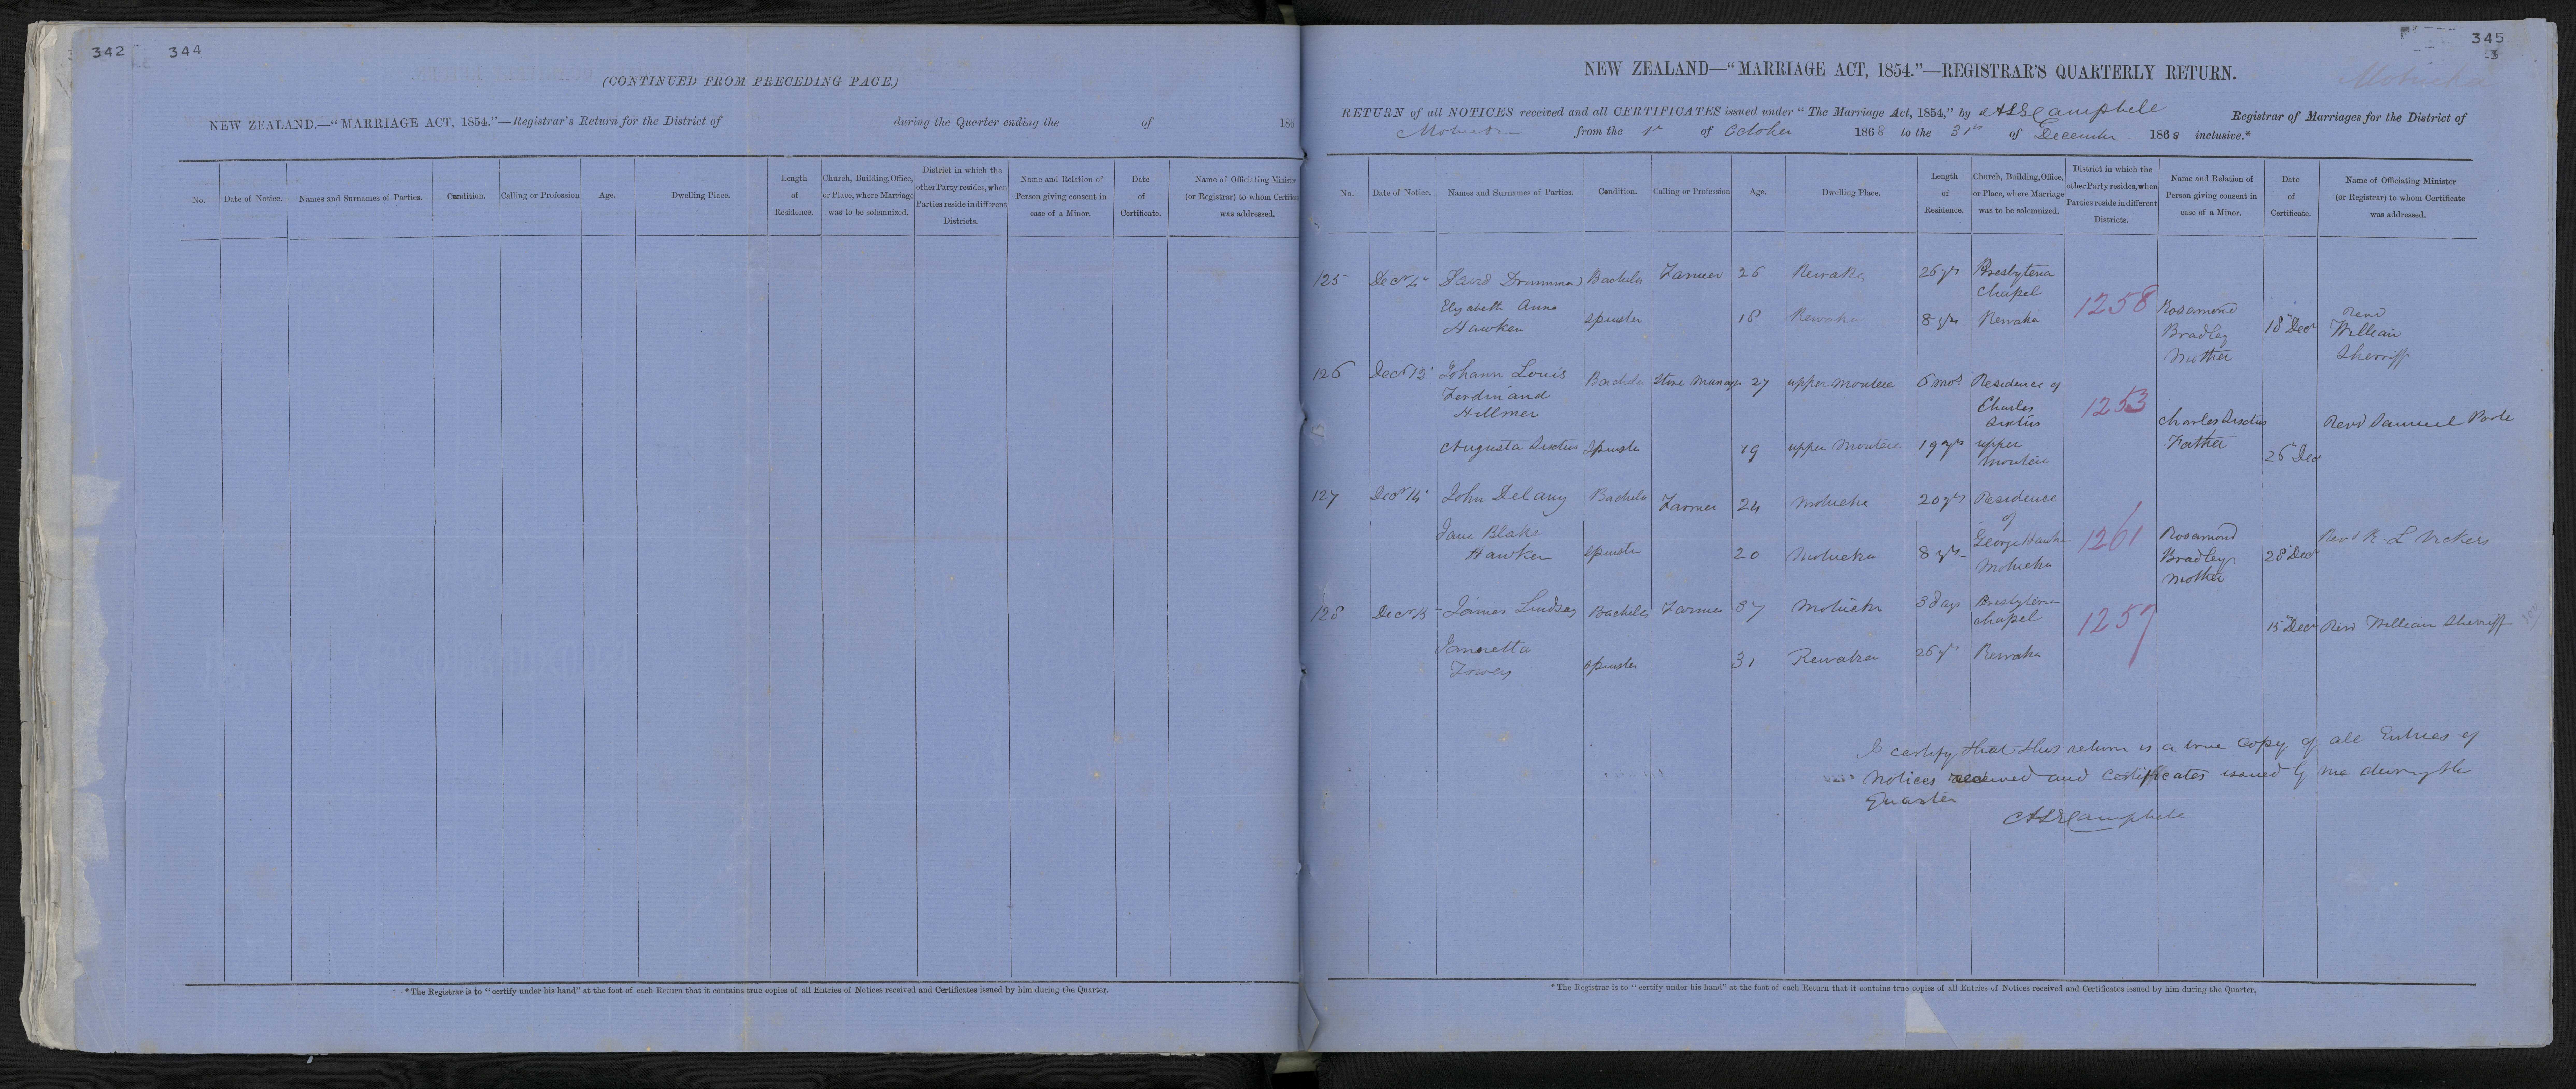 342 344
(CONTINUED FROM PRECEDING PAGE.)
NEW ZEALAND.—"MARRIAGE ACT, 1854."—Registrar's Return for the District of during the Quarter ending the of 186
No.
Date of Notice.
Names and Surnames of Parties.
Condition.
Calling or Profession
Age.
Dwelling Place.
Length
of
Residence.
Church, Building, Office,
or Place, where Marriage
was to be solemnized.
District in which the
other Party resides, when
Parties reside in different
Districts.
Name and Relation of
Person giving consent in
case of a Minor.
Date
of
Certificate.
Name of Officiating Minister
(or Registrar) to whom Certificate
was addressed.
* The Registrar is to "certify under his hand" at the foot of each Return that it contains true copies of all Entries of Notices received and Certificates issued by him during the Quarter.
345
3
Motueka
NEW ZEALAND—"MARRIAGE ACT, 1854."—REGISTRAR'S QUARTERLY RETURN.
RETURN of all NOTICES received and all CERTIFICATES issued under "The Marriage Act, 1854," by Campbell Registrar of Marriages for the District of
Motueka from the 1st of October 1868 to the 31st of December 1868 inclusive.*
No.
Date of Notice.
Names and Surnames of Parties.
Condition.
Calling or Profession
Age.
Dwelling Place.
Length
of
Residence.
Church, Building, Office,
or Place, where Marriage
was to be solemnized.
District in which the
other Party resides, when
Parties reside in different
Districts.
Name and Relation of
Person giving consent in
case of a Minor.
Date
of
Certificate.
Name of Officiating Minister
(or Registrar) to whom Certificate
was addressed.
125 Decr 4 David Drummond Bachelor Farmer 26 Rewaka 26 yrs Presbyterian
Chapel
Elizabeth Anna
Hawken Spinster 18 Rewaka 8 yrs Rewaka
1258
Rosamond
Bradley
Mother
18 Decr
Revd
William
Sherriff
126 Decr 12 Johann Louis
Ferdinand
Hillmer
Bachelor Store Manager 27 upper Moutere 6 mos Residence of
Charles
Sixtus
1253
Augusta Sixtus Spinster 19 upper Moutere 19 yrs upper
Moutere
Charles Sixtus
Father
26 Decr
Revd Samuel Poole
127 Decr 14 John Delany Bachelor Farmer 24 Motueka 20 yrs Residence
of
Jane Blake
Hawken Spinster 20 Motueka 8 yrs George Hawken
Motueka
1261
Rosamond
Bradley
Mother
28 Decr
Revd R. L. Vickers
128 Decr 15 James Lindsay Bachelor Farmer 37 Motueka 3 days Presbyterian
Chapel
1257
Spinster 31 Rewaka 26 yrs Rewaka
15 Decr Revd William Sherriff
I certify that this return is a true copy of all Entries of
Notices received and certificates issued by me during the
Quarter
Campbell
* The Registrar is to "certify under his hand" at the foot of each Return that it contains true copies of all Entries of Notices received and Certificates issued by him during the Quarter.